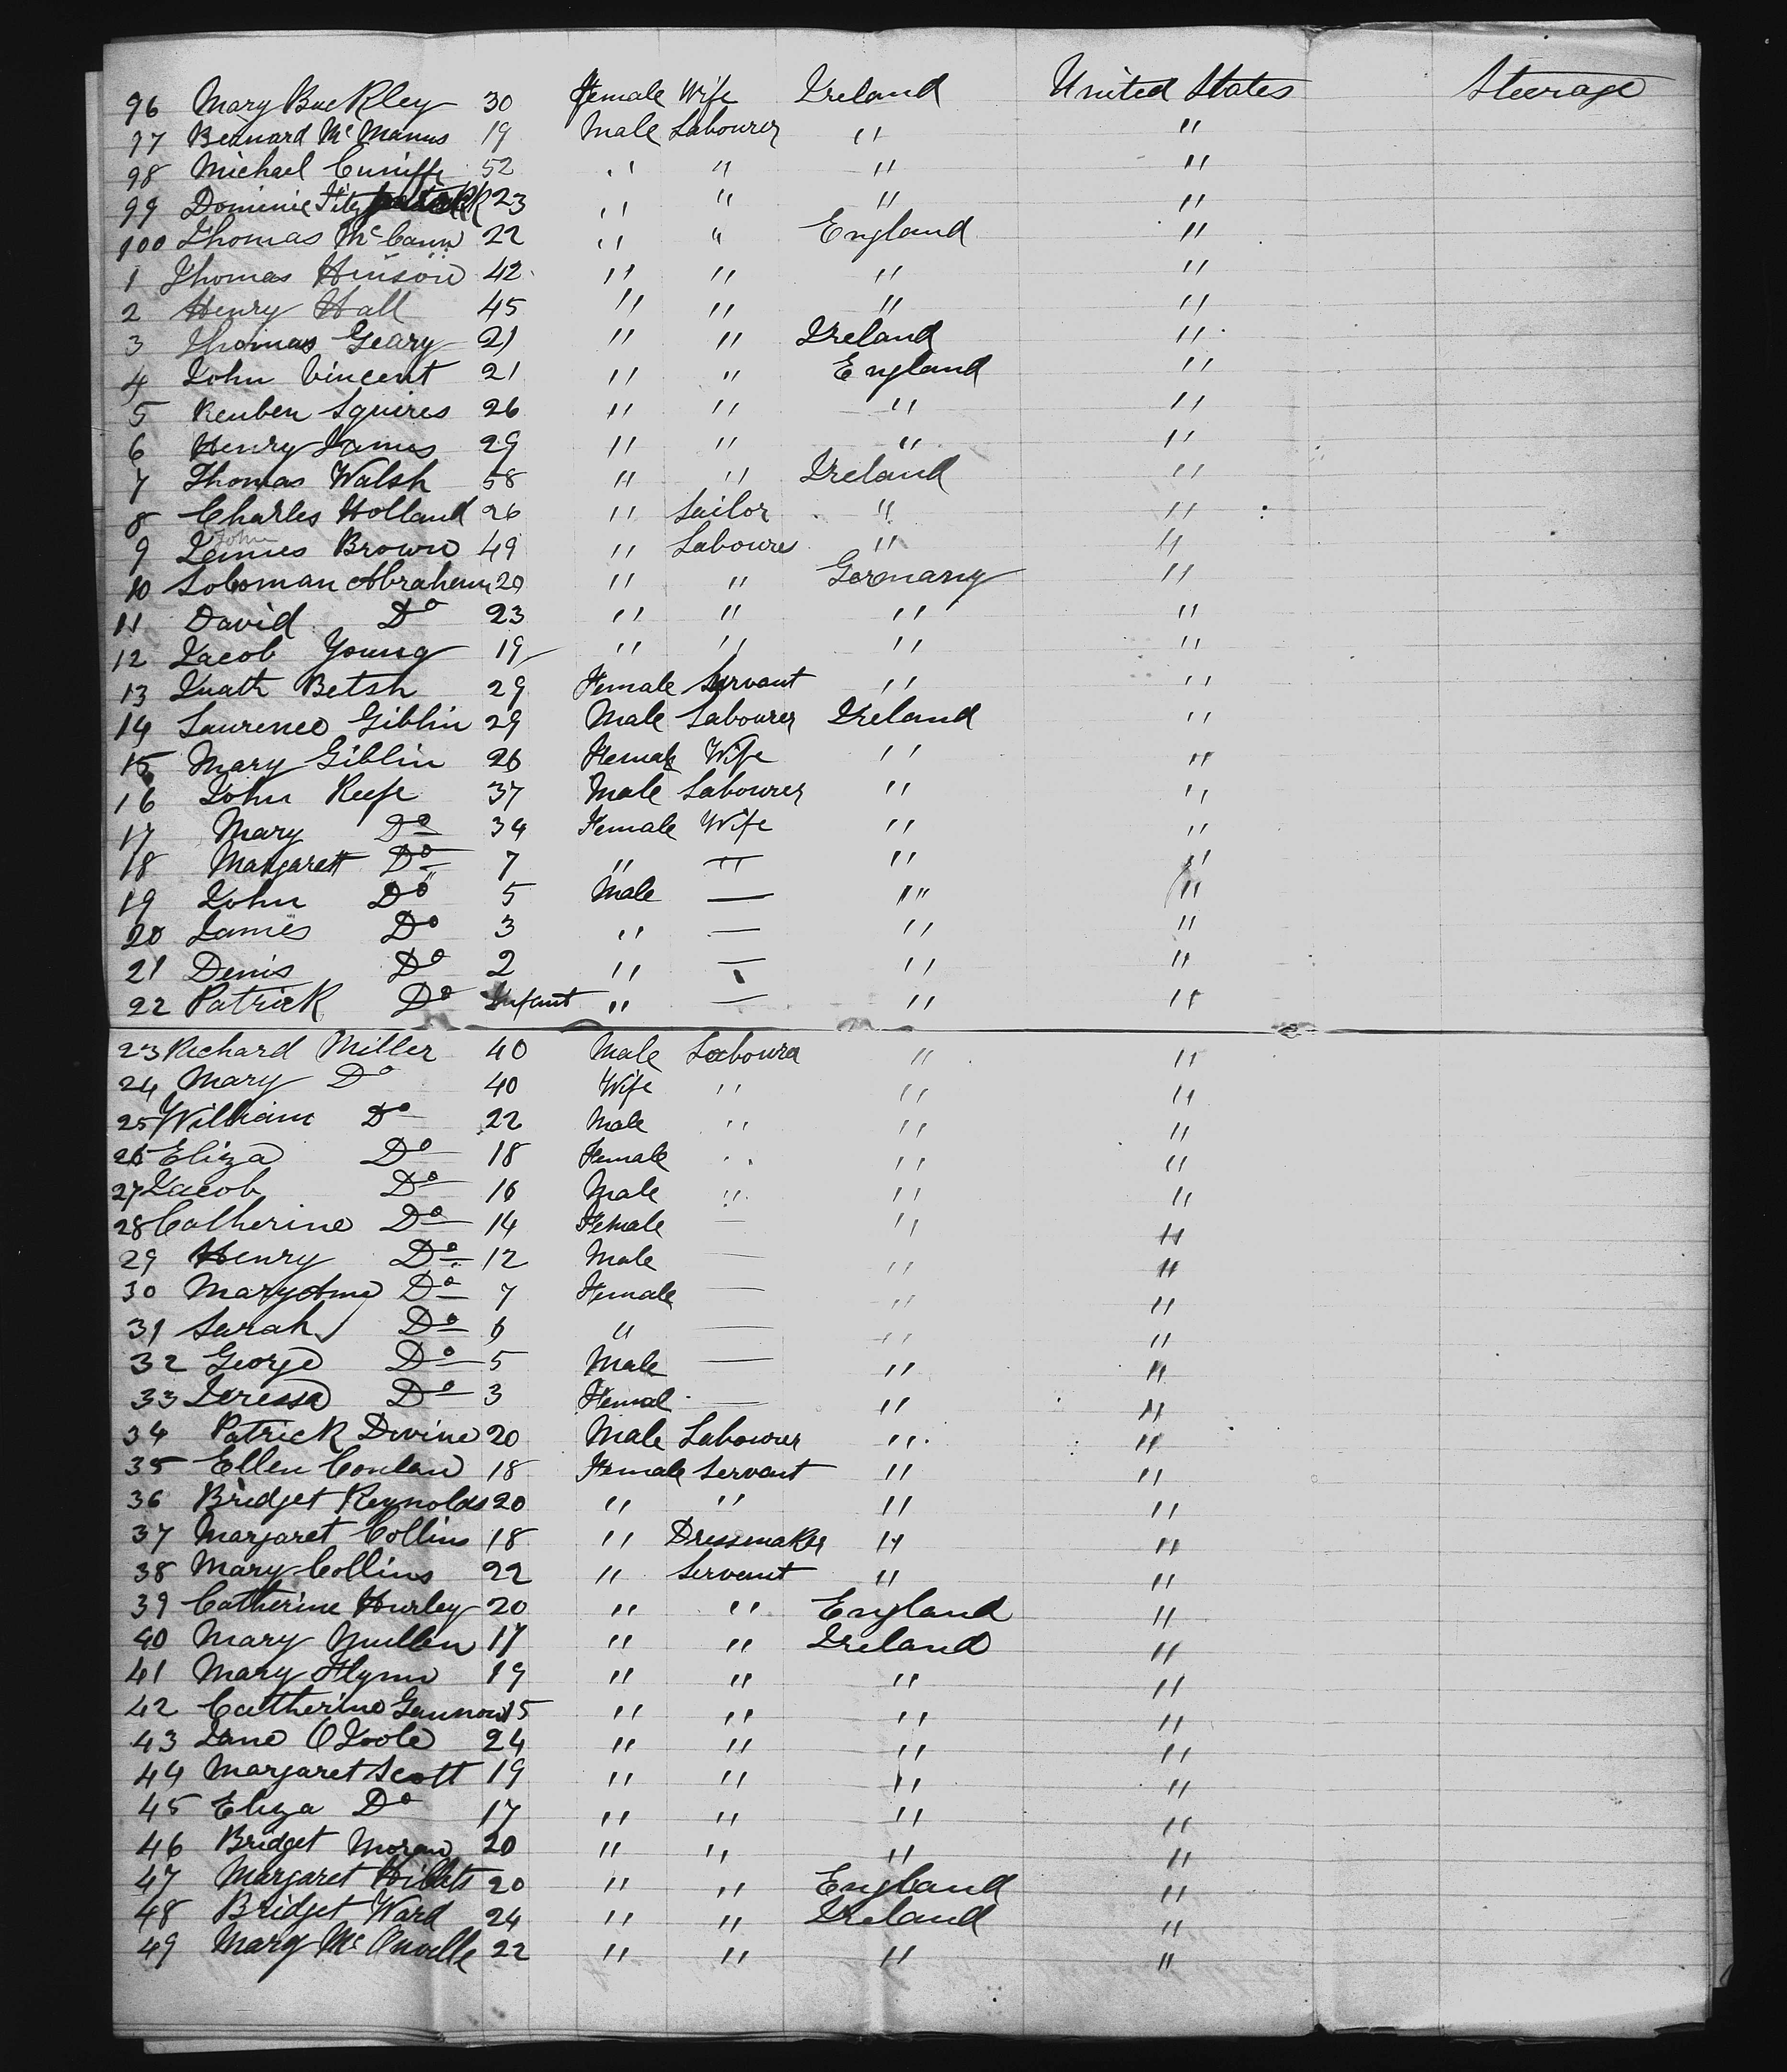 96 Mary Buckley 30 Female Wife Ireland United States Steerage
97 Bernard McManus 19 Male Labourer " "
98 Michael Cuniffe 52 " " " "
99 Dominic Fitzpatrick 23 " " " "
100 Thomas McCann 22 " " England "
1 Thomas Hinson 42 " " " "
2 Henry Hall 45 " " " "
3 Thomas Geary 21 " " Ireland "
4 John Vincent 21 " " England "
5 Reuben Squires 26 " " " "
6 Henry James 29 " " " "
7 Thomas Walsh 58 " " Ireland "
8 Charles Holland 26 " Sailor " "
John
9 James Brown 49 " Laboures " "
10 Soloman Abraham 20 " " Germany "
11 David Do 23 " " " "
12 Jacob Young 19 " " " "
13 Betsh 29 Female Servant " "
14 Laurence Giblin 29 Male Labourer Ireland "
15 Mary Giblin 26 Female Wife " "
16 John Keefe 37 Male Labourer " "
17 Mary Do 34 Female Wife " "
18 Margarett Do 7 " " " "
19 John Do 5 Male — " "
20 James Do 3 " — " "
21 Denis Do 2 " — " "
22 Patrick Do Infant " — " "
23 Richard Miller 40 Male Laboura " "
24 Mary Do 40 Wife " " "
25 William Do 22 Male " " "
26 Eliza Do 18 Female " " "
27 Jacob Do 16 Male " " "
28 Catherine Do 14 Female — " "
29 Henry Do 12 Male — " "
30 Mary Ann Do 7 Female — " "
31 Sarah Do 6 " — " "
32 George Do 5 Male — " "
33 Teressa Do 3 Femal — " "
34 Patrick Devine 20 Male Labourer " "
35 Ellen Conlan 18 Female Servant " "
36 Bridget Reynolds 20 " " " "
37 Margaret Collins 18 " Dressmaker " "
38 Mary Collins 22 " Servant " "
39 Catherine Hurley 20 " " England "
40 Mary Mullen 17 " " Ireland "
41 Mary Flynn 19 " " " "
42 Catherine Gannon 15 " " " "
43 Jane OToole 24 " " " "
44 Margaret Scott 19 " " " "
45 Eliza Do 17 " " " "
46 Bridget Moran 20 " " " "
47 Margaret 20 " " England "
48 Bridget Ward 24 " " Ireland "
49 Mary 22 " " " "